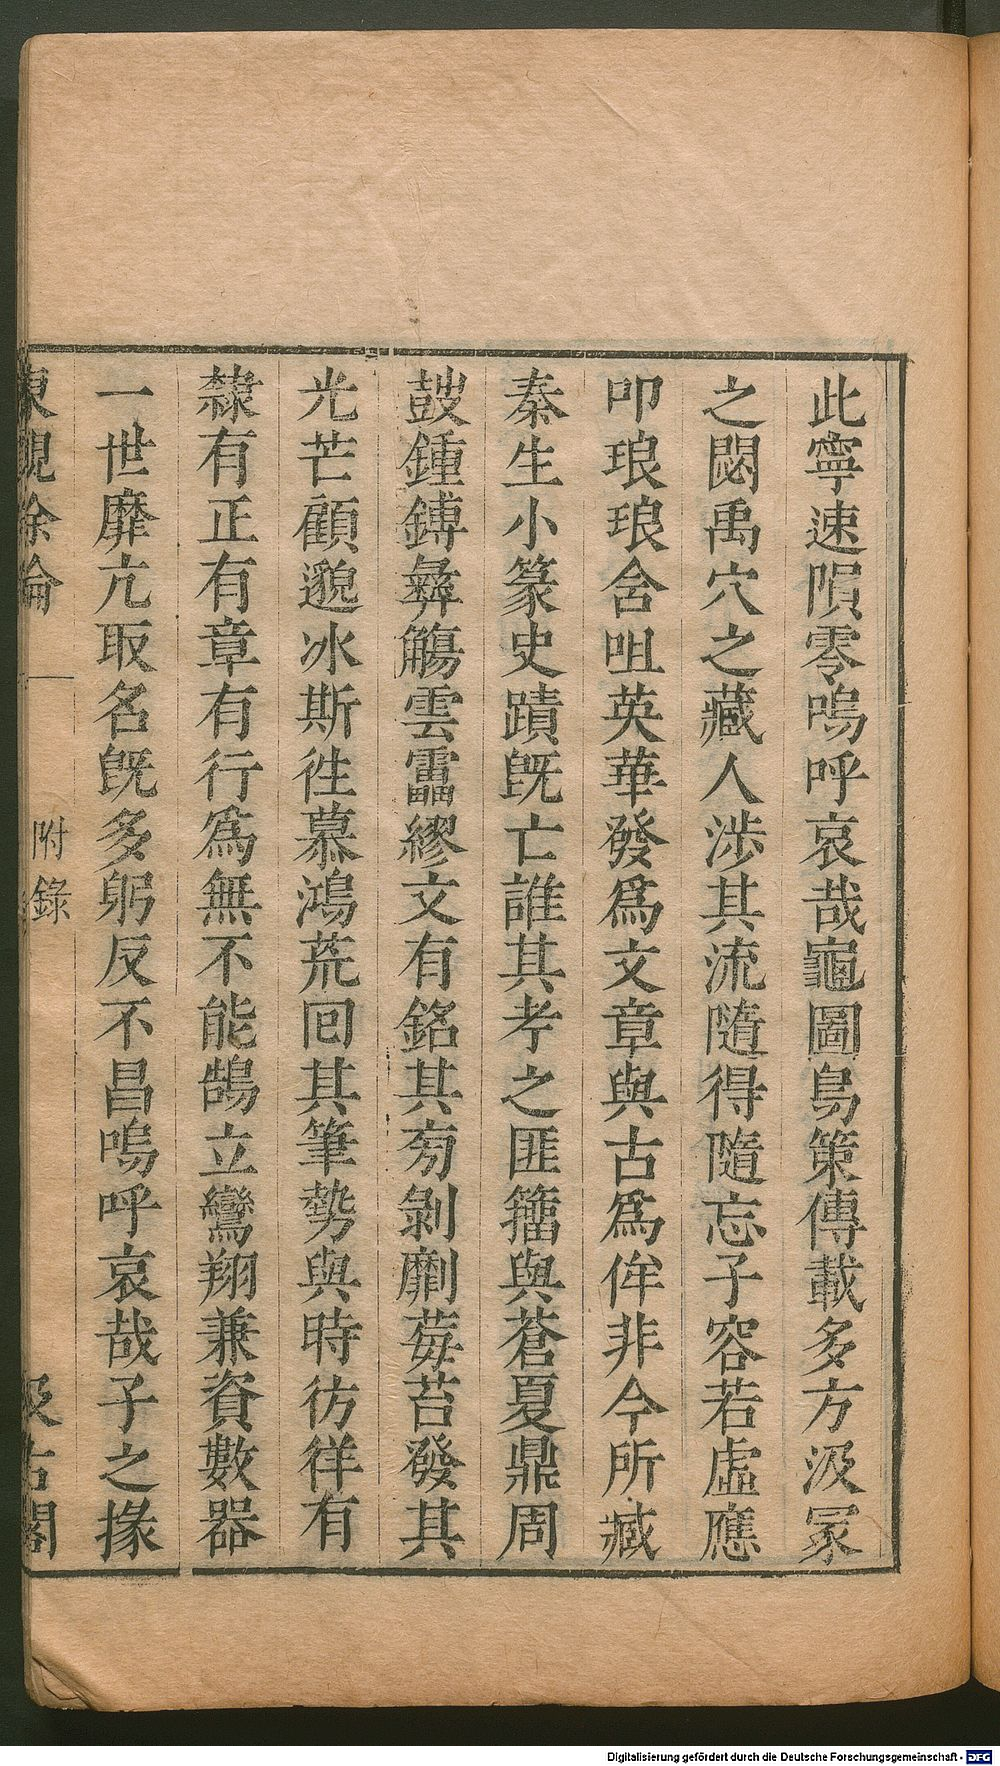 此寧速隕零嗚呼哀哉龜圖鳥策傳載多方汲冢
之閟禹穴之藏人涉其流隨得隨忘子容若虛應
叩琅琅含咀英華發爲文章與古爲侔非今所臧
秦生小篆史蹟旣亡誰其考之匪籀與蒼夏鼎周
鼓鍾鎛彝觴雲雷繆文有銘其旁剝劘莓苔發其
光芒顧邈冰斯徃慕鴻荒回其筆勢與時彷徉有
隸有正有章有行爲無不能鵠立鸞翔兼資數器
一世靡亢取名旣多躬反不昌嗚呼哀哉子之掾
東觀餘論 附錄 汲古閣
Digitalisierung gefördert durch die Deutsche Forschungsgemeinschaft - DFG